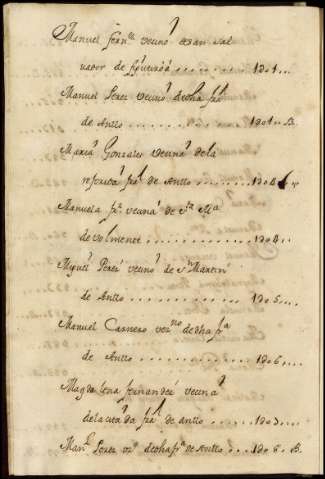 Manuel fern.z vecino de san Sal
vador de figueiroá . . . . . . . . 1201 . . .
Manuel Perez vecino de dha fra
de Antto . . . . . . . . . . . 1201 . . B.
Maria Gonzales vecina de la
referida fra de Antto . . . . . . . 1204
Manuela fz vecina de Sta Ma
de volmente . . . . . . . . . . . 1204 . .
Miguel Perez vecino de Sn Martin
de Antto . . . . . . . . . . . . 1205 . . . .
Manuel Carnero vezno de dha fra
de Antto . . . . . . . . . . . 1206 . . . .
Magdalena fernandez vecina
de la citada fra de antto . . . . . . 1203 . . . .
Manl Perez vo de dha fra de Antto . . . 1206 . B.